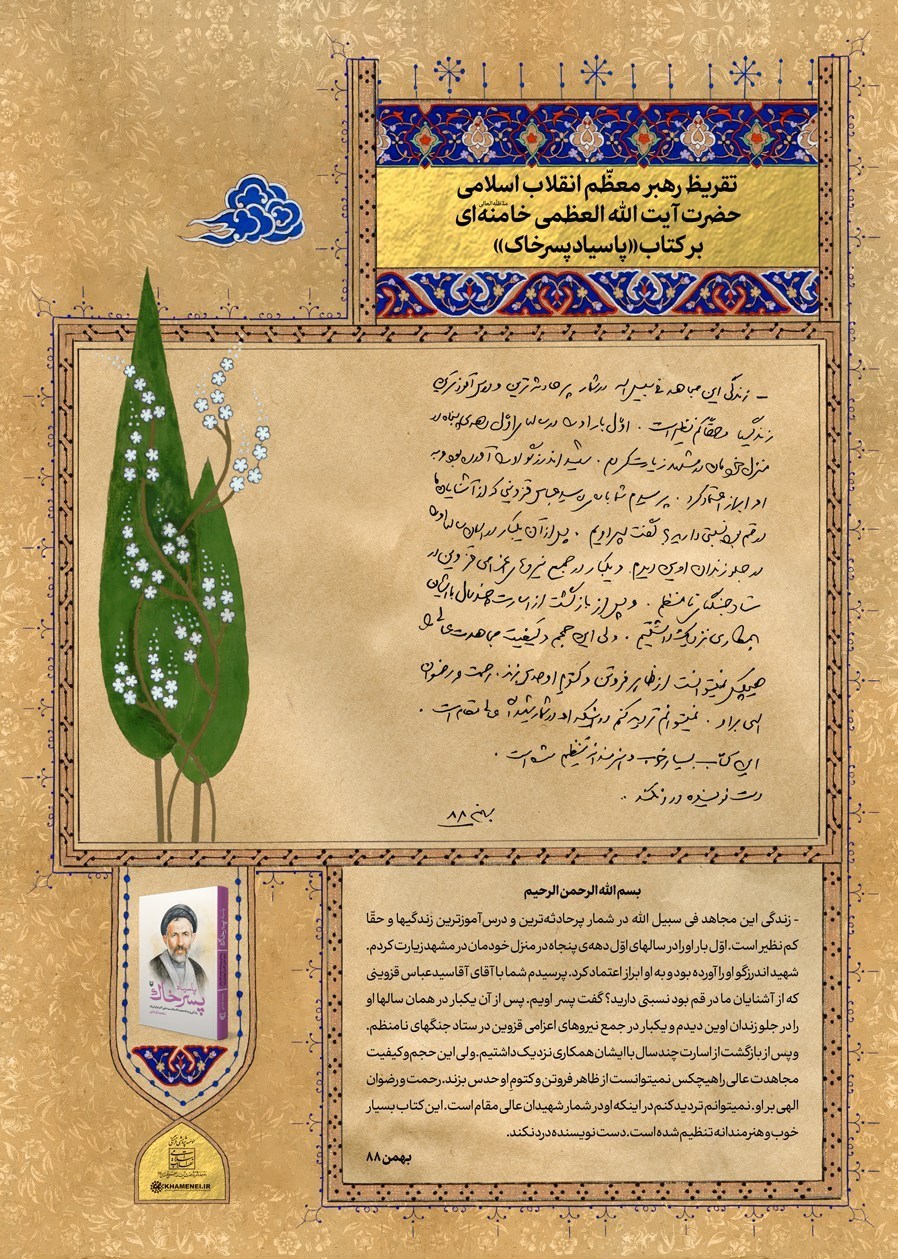 تقریظ رهبر معظّم انقلاب اسلامی
حضرت آیت الله العظمی خامنه‌ای مدّظلّه‌العالی
بر کتاب «پاسیاد پسر خاک»
- زندگی این مجاهد فی سبیل الله در شمار پرحادثه‌ترین و درس‌آموزترین
زندگیها و حقّاً کم نظیر است. اوّل بار او را در سالهای اوّل دهه‌ی پنجاه در
منزل خودمان در مشهد زیارت کردم. شهید اندرزگو او را آورده بود و به
او ابراز اعتماد کرد. پرسیدم شما با آقای آسید عباس قزوینی که از آشنایان ما
در قم بود نسبتی دارید؟ گفت پسر اویم. پس از آن یکبار در همان سالها او را
در جلو زندان اوین دیدم و یکبار در جمع نیروهای اعزامی قزوین در
ستاد جنگهای نامنظم. و پس از بازگشت از اسارت چند سال با ایشان
همکاری نزدیک داشتیم. ولی این حجم و کیفیت مجاهدت عالی را
هیچکس نمیتوانست از ظاهر فروتن و کتوم او حدس بزند. رحمت و رضوان
الهی بر او. نمیتوانم تردید کنم در اینکه او در شمار شهیدان عالی مقام است.
این کتاب بسیار خوب و هنرمندانه تنظیم شده است.
دست نویسنده درد نکند..
بهمن ۸۸
بسم الله الرحمن الرحیم
- زندگی این مجاهد فی سبیل الله در شمار پرحادثه‌ترین و درس‌آموزترین زندگیها و حقّا
کم نظیر است. اوّل بار او را در سالهای اوّل دهه‌ی پنجاه در منزل خودمان در مشهد زیارت کردم.
شهید اندرزگو او را آورده بود و به او ابراز اعتماد کرد. پرسیدم شما با آقای آقاسیدعباس قزوینی
که از آشنایان ما در قم بود نسبتی دارید؟ گفت پسر اویم. پس از آن یکبار در همان سالها او
را در جلو زندان اوین دیدم و یکبار در جمع نیروهای اعزامی قزوین در ستاد جنگهای نامنظم.
و پس از بازگشت از اسارت چند سال با ایشان همکاری نزدیک داشتیم. ولی این حجم و کیفیت
مجاهدت عالی را هیچکس نمیتوانست از ظاهر فروتن و کتومِ او حدس بزند. رحمت و رضوان
الهی بر او. نمیتوانم تردید کنم در اینکه او در شمار شهیدان عالی مقام است. این کتاب بسیار
خوب و هنرمندانه تنظیم شده است. دست نویسنده درد نکند.
بهمن ۸۸
پاسیاد
پسر خاک
KHAMENEI.IR